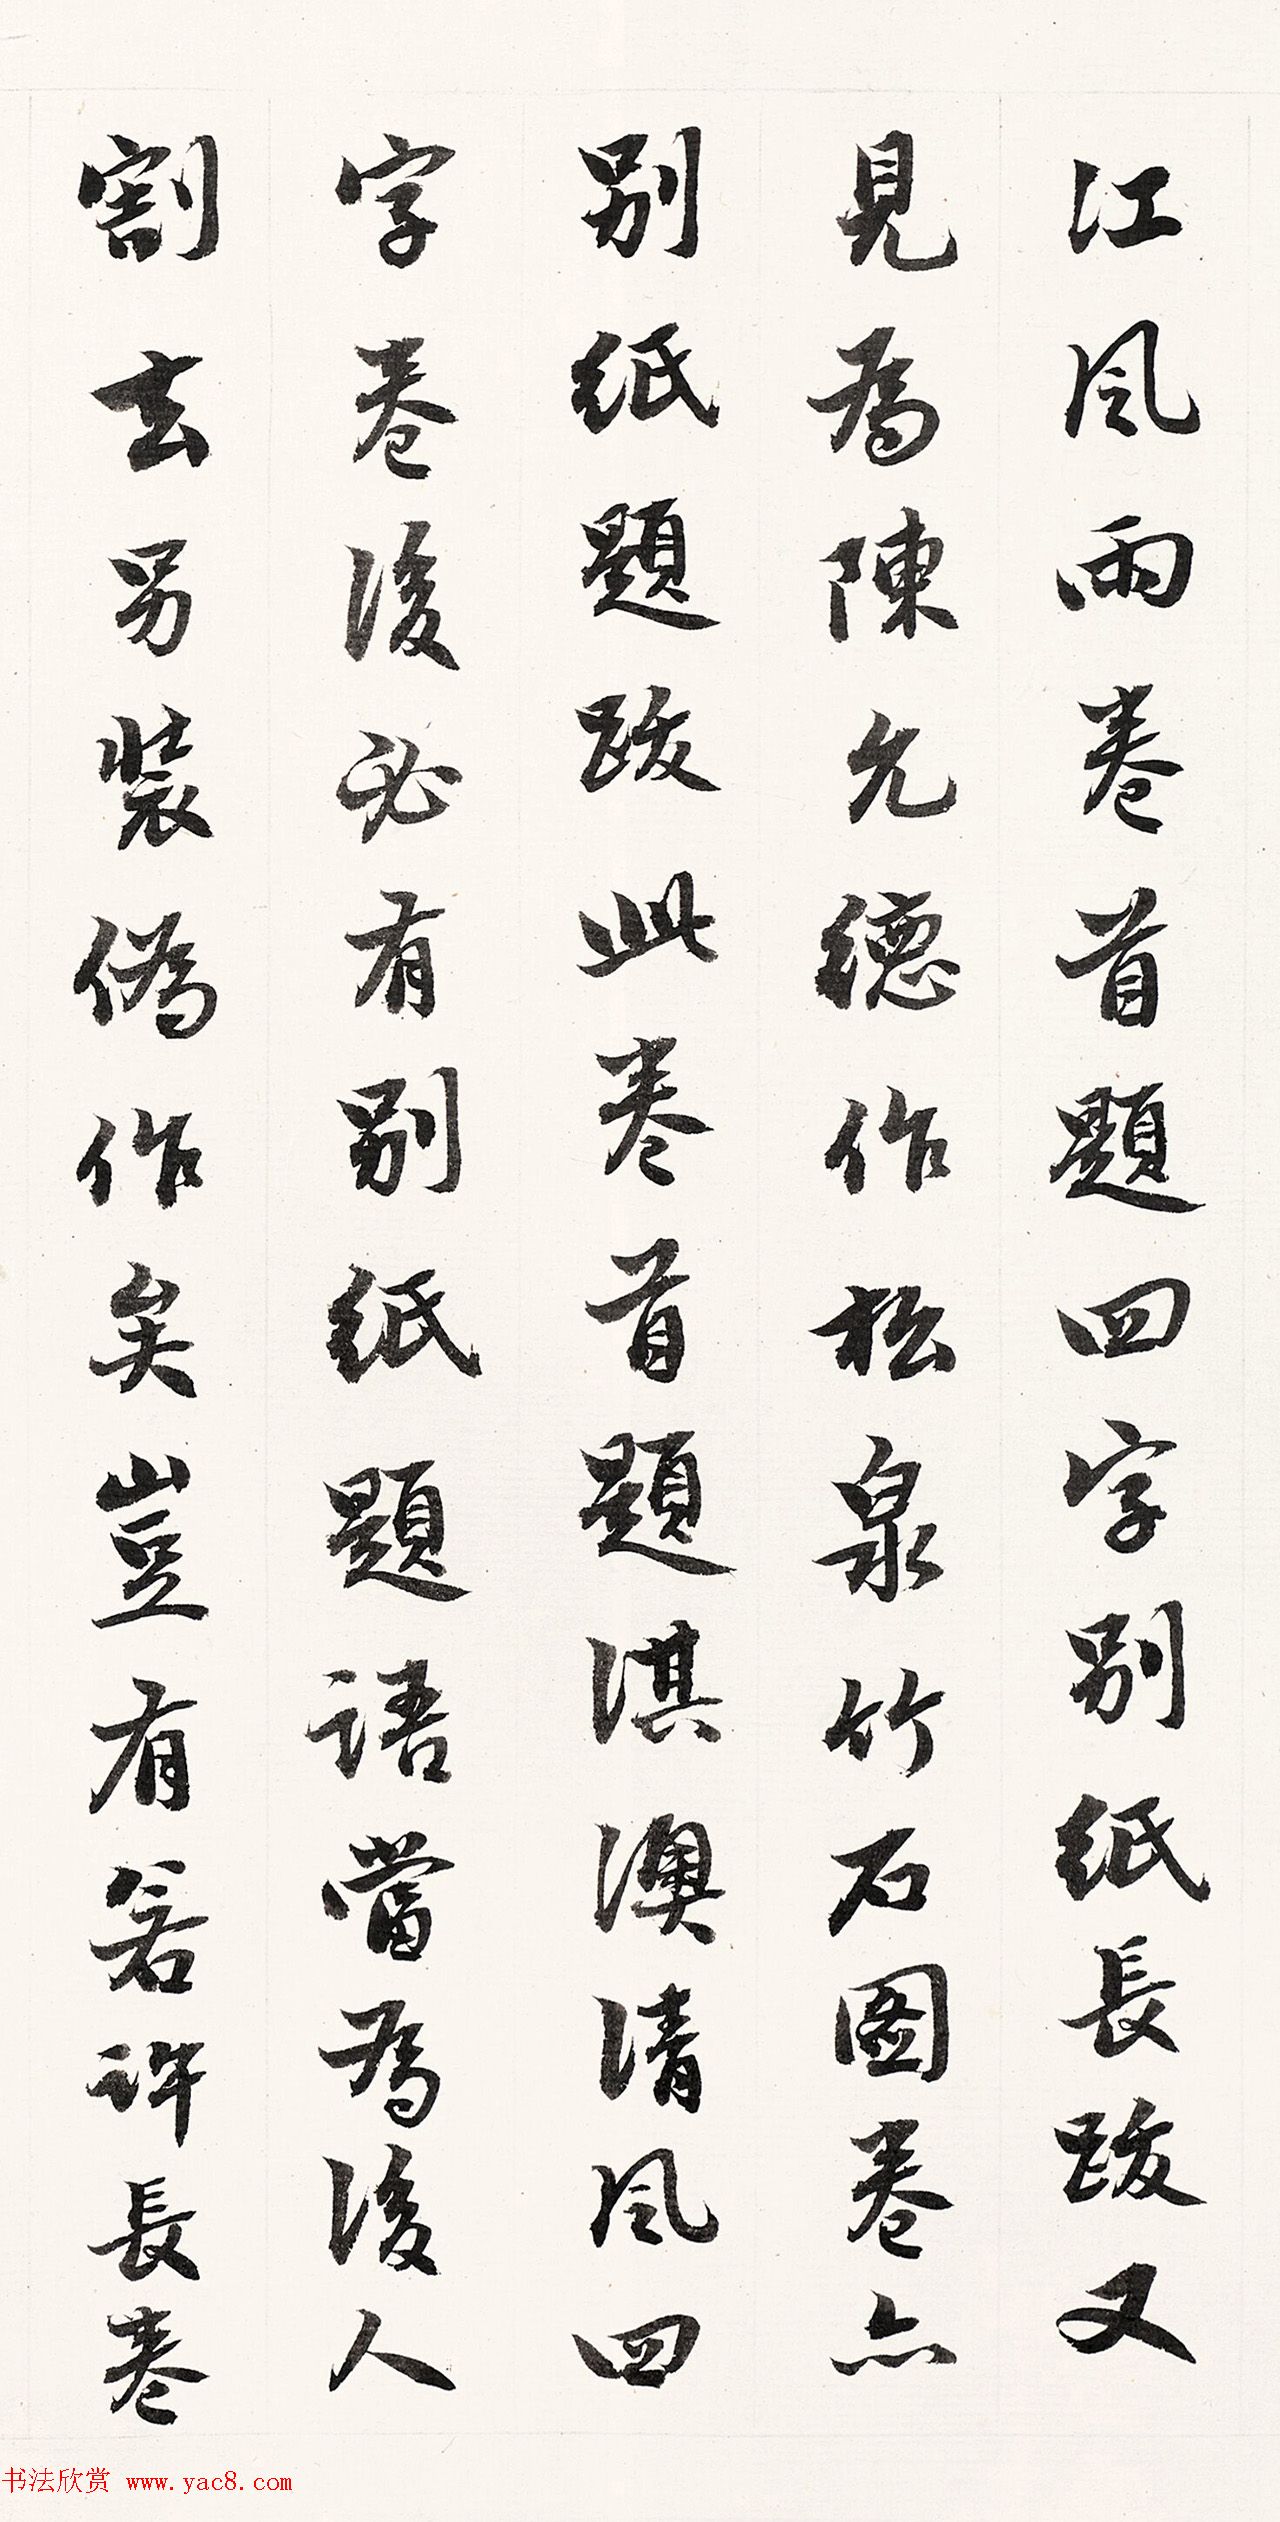 江風雨卷首題四字別紙長跋又
見為陳允德作松泉竹石圖卷亦
別紙題跋此卷首題淇澳清風四
字卷後必有別紙題語當為後人
割去另裝偽作矣豈有若許長卷
书法欣赏 www.yac8.com